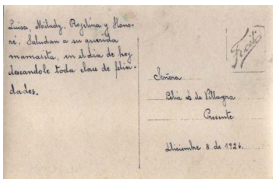 Luisa, Milady, Rogelina y Hono-
ré. Saludan a su querida
mamasita, en el dia de hoy
deseandole toda clase de felici-
dades.
Señora
Celia de Villagra
Presente
Diciembre 8 de 1926.